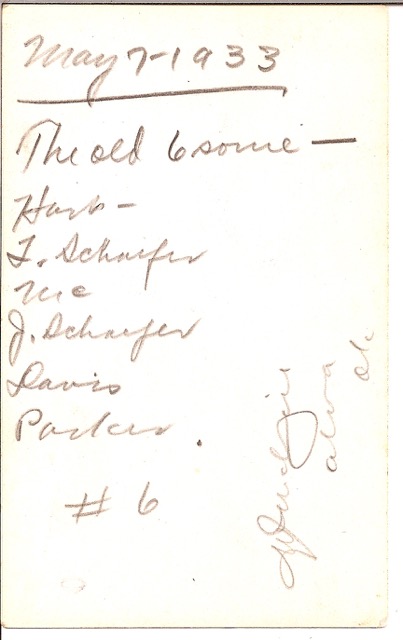 May 7-1933
The old 6some —
Harb -
T. Schaefer
Mc
J. Schaefer
Davis
Parker.
# 6